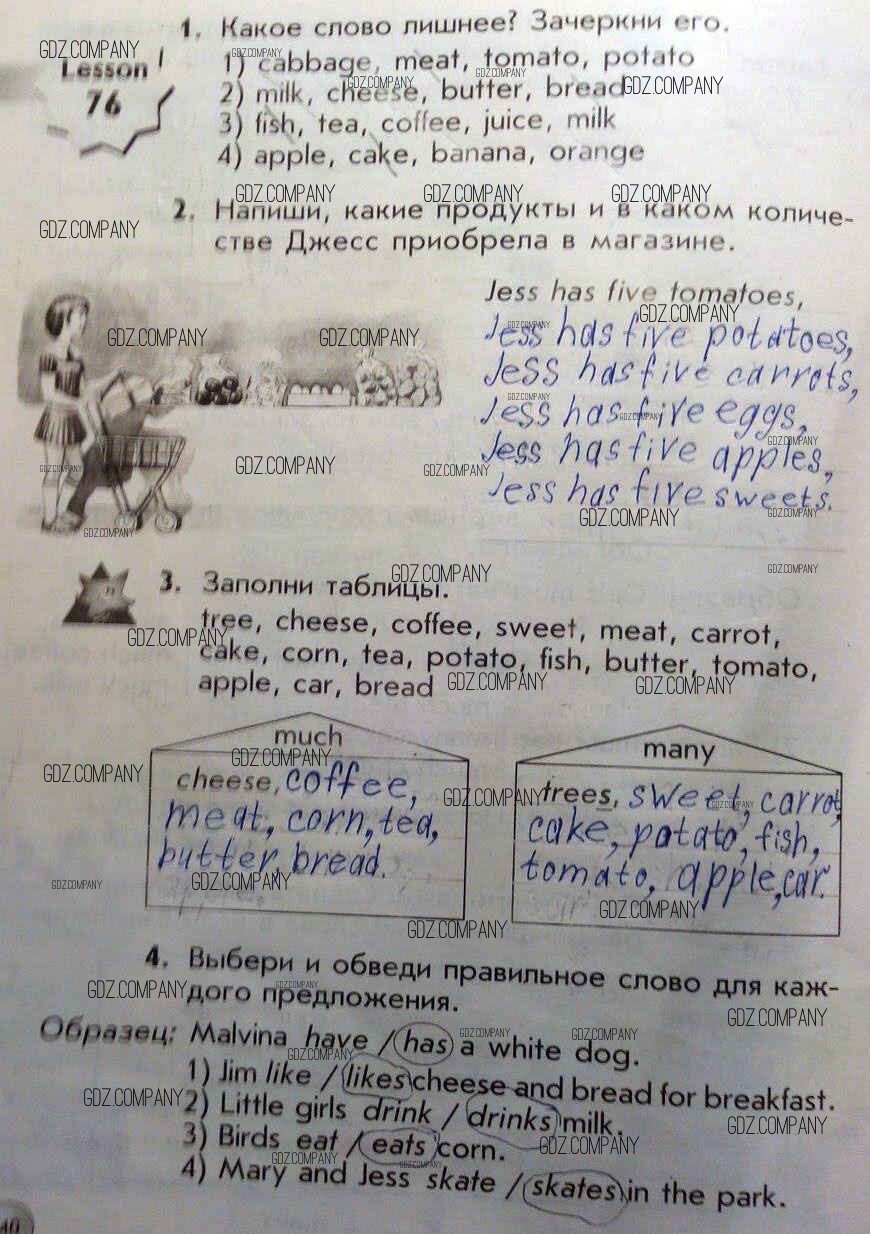 1. Какое слово лишнее? Зачеркни его.
Lesson
76
1) cabbage, meat, tomato, potato
2) milk, cheese, butter, bread
3) fish, tea, coffee, juice, milk
4) apple, cake, banana, orange
2. Напиши, какие продукты и в каком количе-
стве Джесс приобрела в магазине.
Jess has five tomatoes,
Jess has five potatoes,
Jess has five carrots,
Jess has five eggs,
Jess has five apples,
Jess has five sweets.
3. Заполни таблицы.
tree, cheese, coffee, sweet, meat, carrot,
cake, corn, tea, potato, fish, butter, tomato,
apple, car, bread
much
cheese, coffee,
meat, corn, tea,
butter, bread.
many
trees, sweet, carrot,
cake, potato, fish,
tomato, apple, car.
4. Выбери и обведи правильное слово для каж-
дого предложения.
Образец: Malvina have / has a white dog.
1) Jim like / likes cheese and bread for breakfast.
2) Little girls drink / drinks milk.
3) Birds eat / eats corn.
4) Mary and Jess skate / skates in the park.
40
GDZ.COMPANY